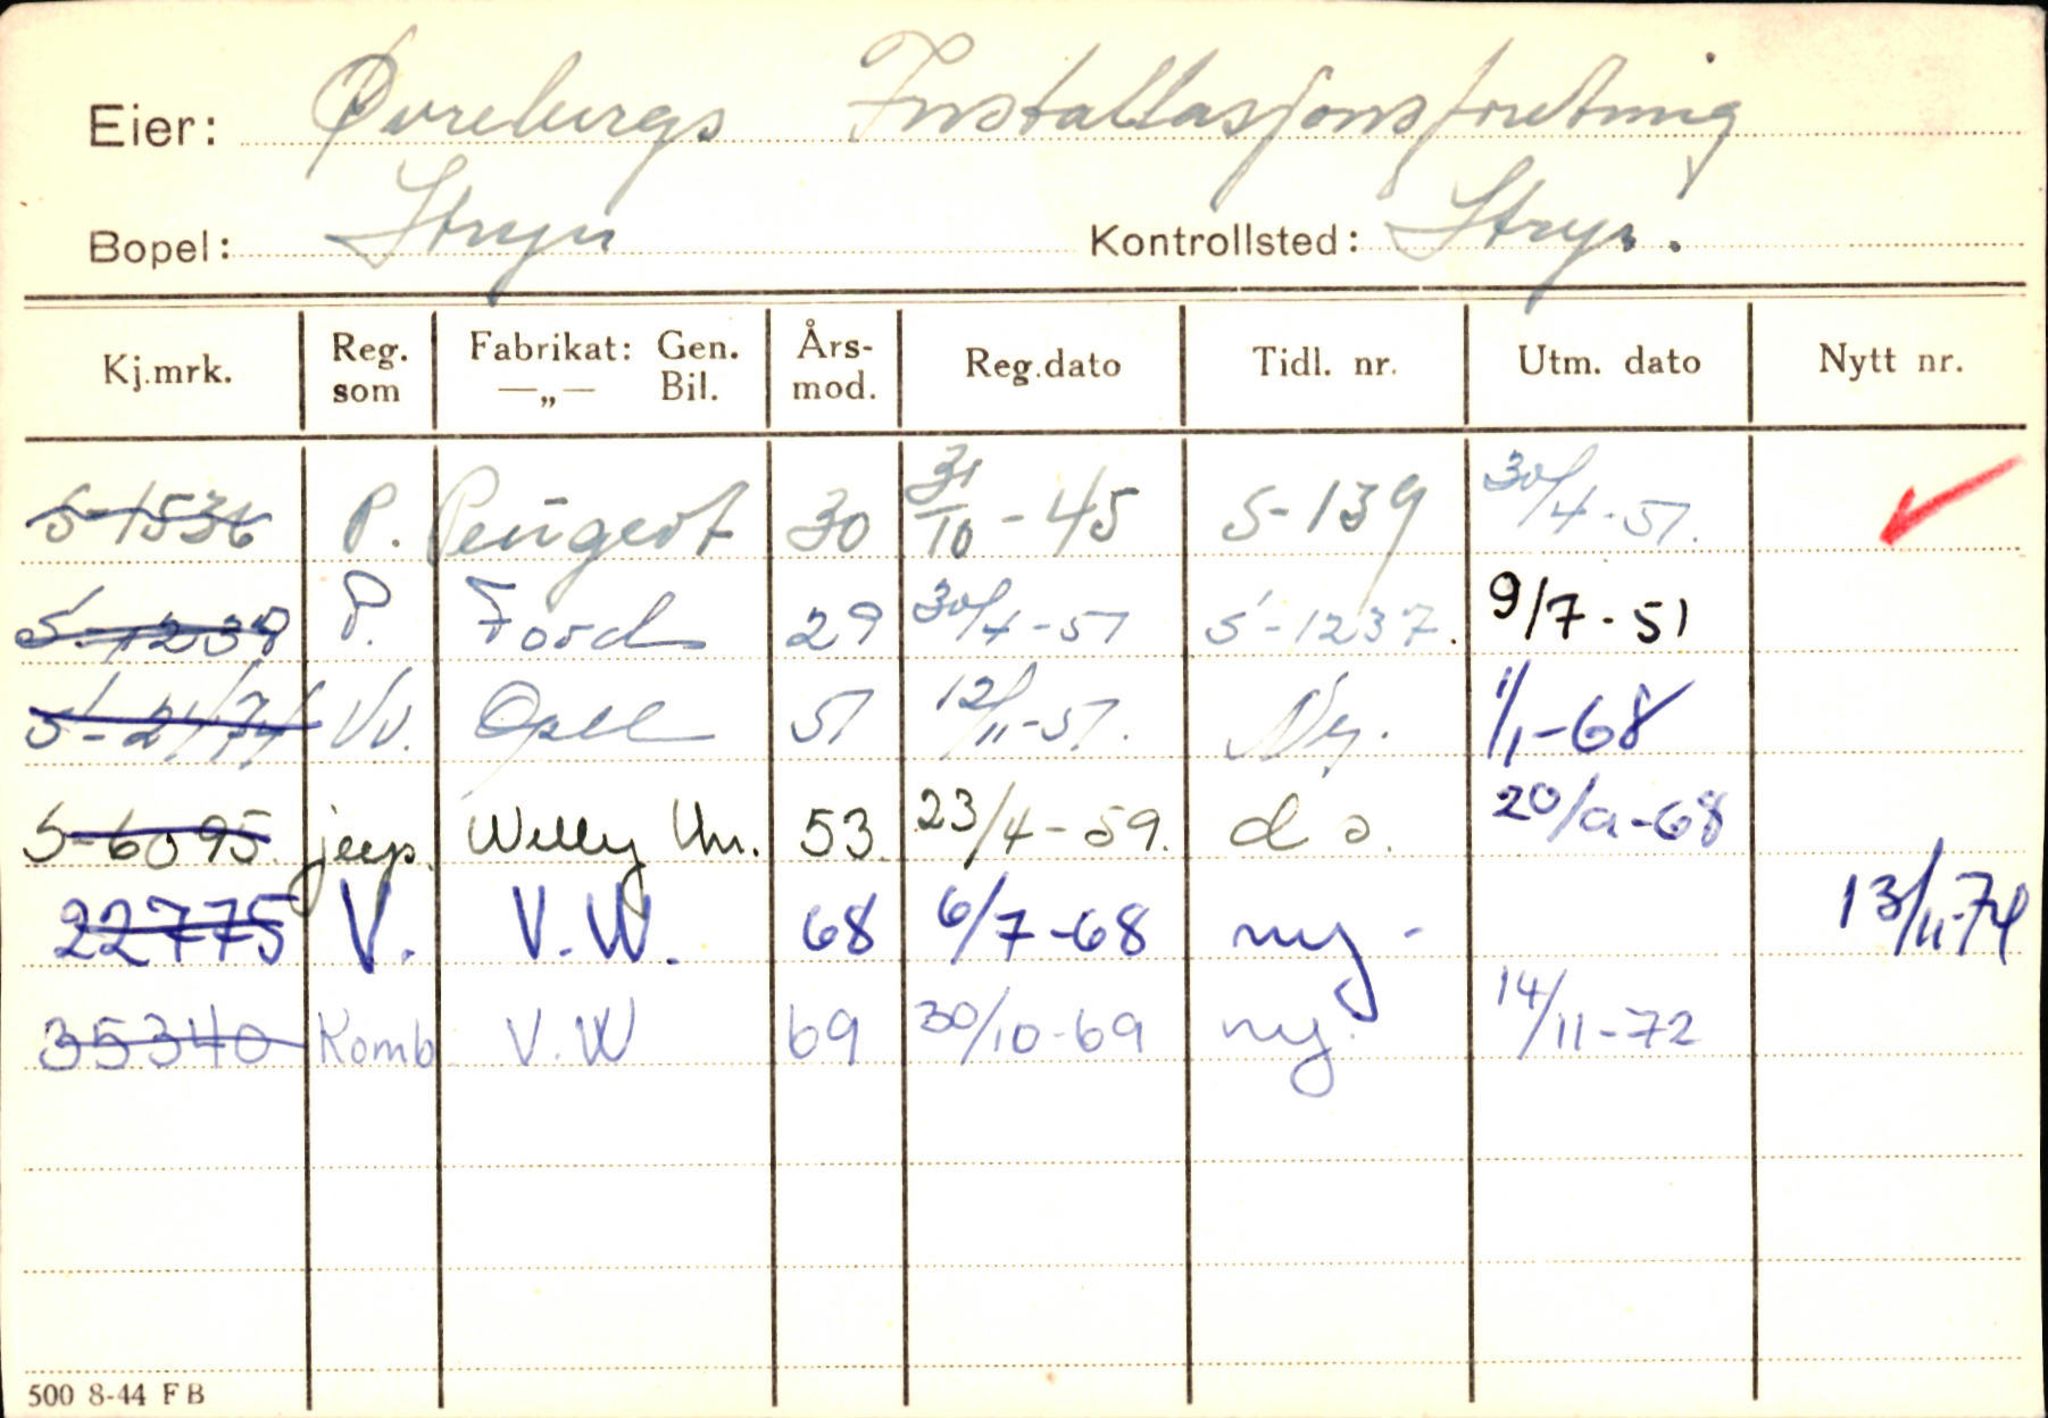 Eier: Øvrebergs Installasjonsforretning
Bopel: Stryn Kontrollsted: Stryn.
Kj.mrk. Reg. som Fabrikat: Gen. —„— Bil. Års-mod. Reg.dato Tidl. nr. Utm. dato Nytt nr.
S-1536 P. Peugeot 30 31/10-45 S-139 30/4-51.
S-1239 P. Ford 29 30/4-51 S-1237. 9/7-51
Vv. Opel 51 12/11-51. Ny. 1/1-68
S-6095 jeep. Willy Un. 53. 23/4-59. d o. 20/a-68
22775 V. V.W. 68 6/7-68 ny - 13/11-74
35340 Komb V.W 69 30/10-69 ny. 14/11-72
500 8-44 F B